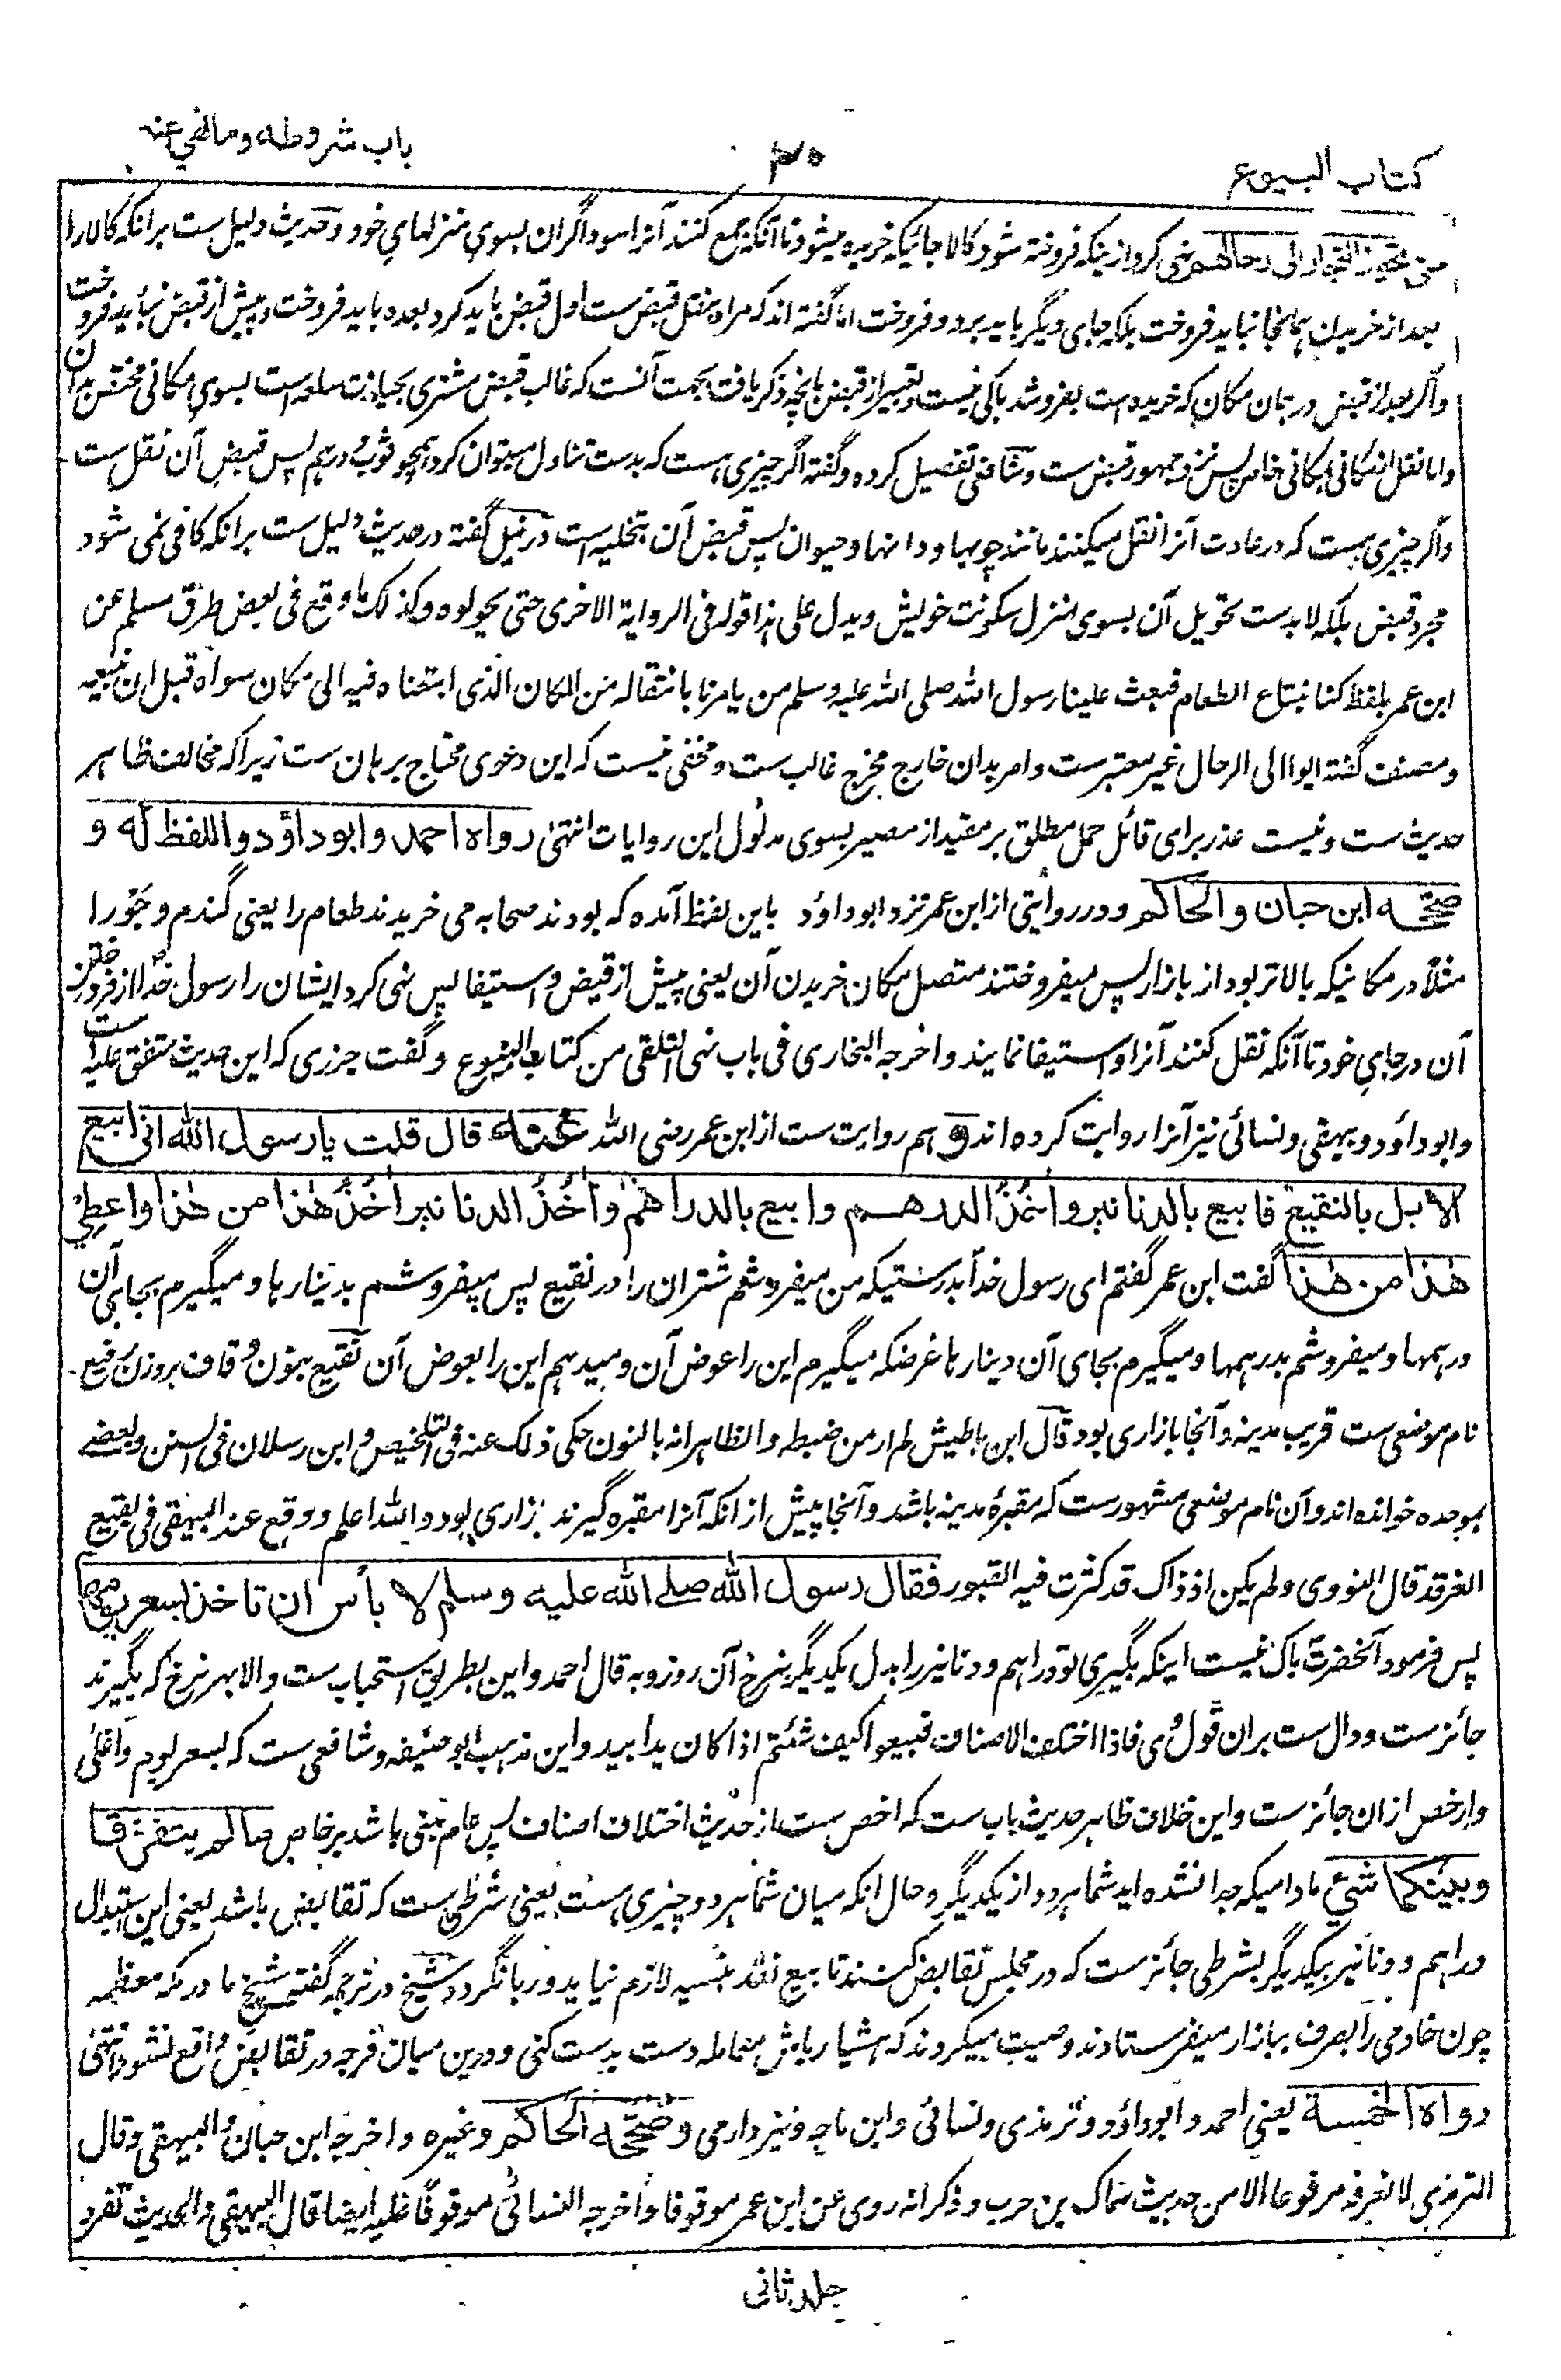 کتاب البیوع
۳۰
باب شروطه وما نهی عنه
حتی یحوزها التجار الی رحالهم نهی کرد ازینکه فروخته شود کالا جائیکه خریده میشود تا آنکه جمع کنند آنرا سوداگران بسوی منزلهای خود و حدیث دلیل ست برانکه کالا را
بعد از خریدن همانجا نباید فروخت بلکه جای دیگر باید برد و فروخت اما گفته اند که مراد بنقل قبض ست اول قبض باید کرد بعده باید فروخت و پیش از قبض نباید فروخت
و اگر بعد از قبض در همان مکان که خریده است بفروشد باکی نیست و تعبیر از قبض بانچه ذکر یافت بجهت آنست که غالب قبض مشتری بحیازت سلعه است بسوی مکانی مختص بدان
و اما نقل از مکانی بمکانی خاص پس نزد جمهور قبض ست و شافعی تفصیل کرده و گفته اگر چیزی ست که بدست تناول میتوان کرد همچو ثوب و درهم پس قبض آن نقل ست
و اگر چیزی ست که در عادت آنرا نقل میکنند مانند چوبها و دانها و حیوان پس قبض آن بتخلیه است در نیل گفته در حدیث دلیل ست برانکه کافی نمی شود
مجرد قبض بلکه لابد ست تحویل آن بسوی منزل سکونت خویش و یدل علی هذا قوله فی الروایة الاخری حتی یحولوه وکذلک ما وقع فی بعض طرق مسلم عن
ابن عمر بلفظ کنا نبتاع الطعام فبعث علینا رسول الله صلی الله علیه وسلم من یامرنا بانتقاله من المکان الذی ابتعناه فیه الی مکان سواه قبل ان نبیعه
و مصنف گفته ایوا الی الرحال غیر معتبر ست و امر بدان خارج مخرج غالب ست و مخفی نیست که این دعوی محتاج برهان ست زیرا که مخالف ظاهر
حدیث ست و نیست عذر برای قائل حمل مطلق بر مقید از مصیر بسوی مدلول این روایات انتهی رواه احمد وابوداؤد واللفظ له و
صححه ابن حبان والحاکم و در روایتی از ابن عمر نزد ابوداؤد باین لفظ آمده که بودند صحابه می خریدند طعام را یعنی گندم و جو را
مثلاً در مکانیکه بالاتر بود از بازار پس میفروختند متصل مکان خریدن آن یعنی پیش از قبض و استیفا پس نهی کرد ایشان را رسول خدا از فروختن
آن در جای خود تا آنکه نقل کنند آنرا و استیفا نمایند و اخرجه البخاری فی باب نهی التلقی من کتاب البیوع و گفت جزری که این حدیث متفق علیه است
و ابوداؤد و بیهقی و نسائی نیز آنرا روایت کرده اند و هم روایت ست از ابن عمر رضی الله عنه قال قلت یا رسول الله انی ابیع
الابل بالنقیع فابیع بالدنانیر واٰخُذُ الدرهم وابیع بالدراهم واٰخُذُ الدنانیر اٰخُذُ هٰذا من هٰذا واعطی
هٰذا من هٰذا گفت ابن عمر گفتم ای رسول خدا بدرستیکه من میفروشم شتران را در نقیع پس میفروشم بدینارها و میگیرم بجای آن
درهمها و میفروشم بدرهمها و میگیرم بجای آن دینارها غرضکه میگیرم این را عوض آن و میدهم این را بعوض آن نقیع بنون و قاف بروزن رفیع
نام موضعی ست قریب مدینه و آنجا بازاری بود قال ابن باطیش لم ار من ضبطه والظاهر انه بالنون حکی ذلک عنه فی التلخیص و ابن رسلان فی السنن و بعضے
بموحده خوانده اند و آن نام موضعی مشهور ست که مقبرهٔ مدینه باشد و آنجا پیش از انکه آنرا مقبره گیرند بازاری بود والله اعلم و وقع عند البیهقی فی بقیع
الغرقد قال النووی ولم یکن اذ ذاک قد کثرت فیه القبور فقال رسول الله صلے الله علیه وسلم لا بأس ان تاخذ بسعر یومها
پس فرمود آنحضرت باک نیست اینکه بگیری تو دراهم و دنانیر را بدل یکدیگر بنرخ آن روز و به قال احمد و این بطریق استحباب ست والا بهر نرخ که بگیرند
جائز ست و دال ست بران قول وی فاذا اختلفت الاصناف فبیعوا کیف شئتم اذا کان یدا بید و این مذهب ابوحنیفه و شافعی ست که بسعر یوم و اغلی
و ارخص ازان جائز ست و این خلاف ظاهر حدیث باب ست که اخص ست از حدیث اختلاف اصناف پس عام مبنی باشد بر خاص مالم یتفرقا
وبینکما شئ مادامیکه جدا نشده اید شما هر دو از یکدیگر و حال انکه میان شما هر دو چیزی ست یعنی شرط ست که تقابض باشد یعنی این استبدال
دراهم و دنانیر بیکدیگر بشرطی جائز ست که در مجلس تقابض کنند تا بیع نقد بنسیه لازم نیاید و ربا نگردد شیخ در ترجمه گفته شیخ ما در مکه معظمه
چون خادمی را بصرف ببازار میفرستادند وصیت میکردند که هشیار باش معامله دست بدست کنی و درین میان فرجه در تقابض واقع نشود انتهی
رواه الخمسة یعنی احمد و ابوداؤد و ترمذی و نسائی و ابن ماجه و نیز دارمی وصححه الحاکم وغیره و اخرجه ابن حبان والبیهقی وقال
الترمذی لا نعرفه مرفوعا الا من حدیث سماک بن حرب و ذکر انه روی عن ابن عمر موقوفا و اخرجه النسائی موقوفاً علیه ایضا قال البیهقی والحدیث تفرد
جلد ثانی